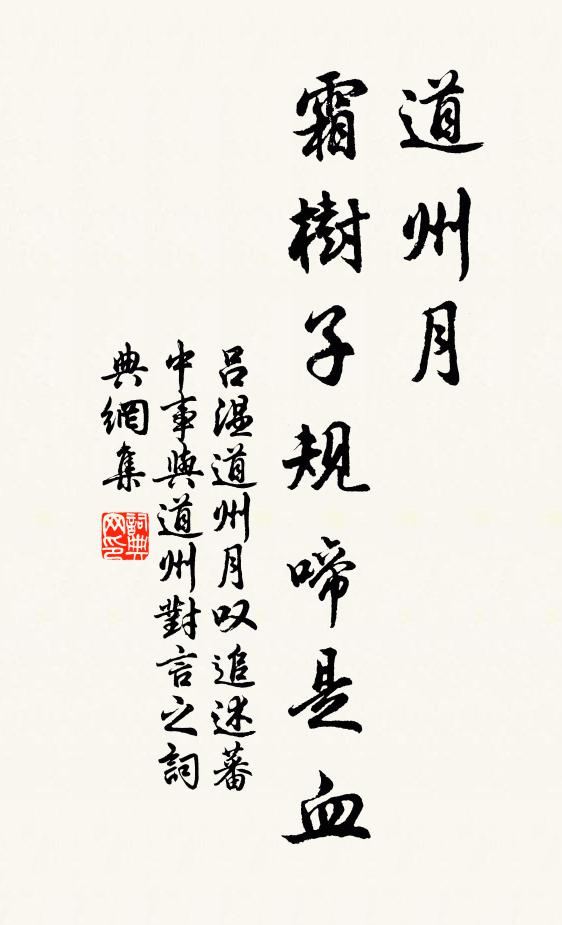 道州月
霜樹子規啼是血
呂溫道州月叹追述蕃
中事與道州對言之詞
典網集
詞典
网印